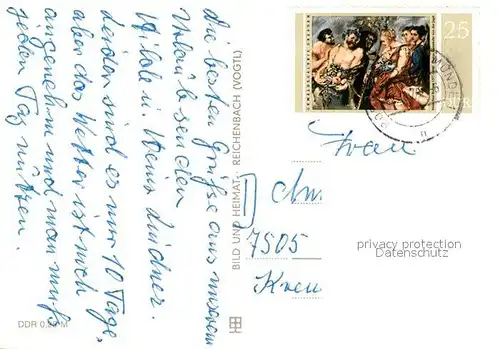 die besten Grüße aus unserem
Urlaub senden
Hilde u. Heinz Lindner.
Leider sind es nur 10 Tage,
aber das Wetter ist noch
angenehm und man muß
jeden Tag nützen.
BILD UND HEIMAT REICHENBACH (VOGTL)
DDR 0,25 M
25
DDR
Frau
Chr
7505
Kreu
privacy protection
Datenschutz